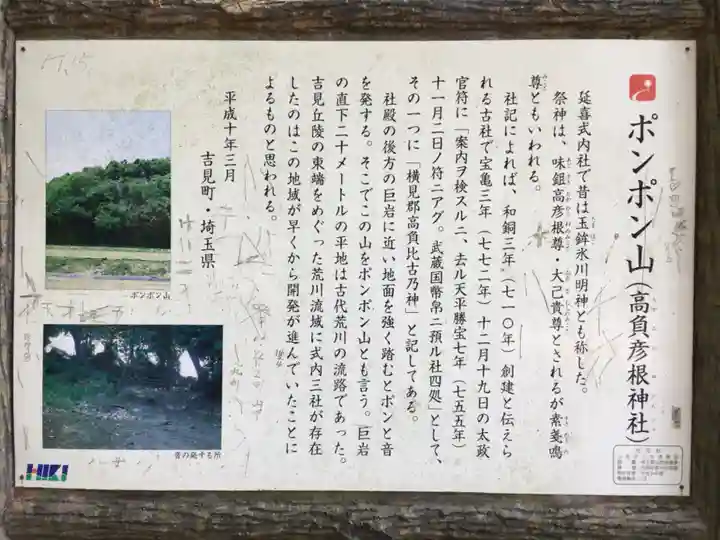 ポンポン山(高負彦根神社)
延喜式内社で昔は玉鉾氷川明神とも称した。
祭神は、味鉏高彦根尊・大己貴尊とされるが素戔嗚
尊ともいわれる。
社記によれば、和銅三年(七一〇年)創建と伝えら
れる古社で宝亀三年(七七二年)十二月十九日の太政
官符に「案内ヲ検スルニ、去ル天平勝宝七年(七五五年)
十一月二日ノ符ニアグ。武蔵国幣帛ニ預ル社四処」として、
その一つに「横見郡高負比古乃神」と記してある。
社殿の後方の巨岩に近い地面を強く踏むとポンと音
を発する。そこでこの山をポンポン山とも言う。巨岩
の直下二十メートルの平地は古代荒川の流路であった。
吉見丘陵の東端をめぐった荒川流域に式内三社が存在
したのはこの地域が早くから開発が進んでいたことに
よるものと思われる。
平成十年三月
吉見町・埼玉県
ポンポン山
音の発する所
HIKI